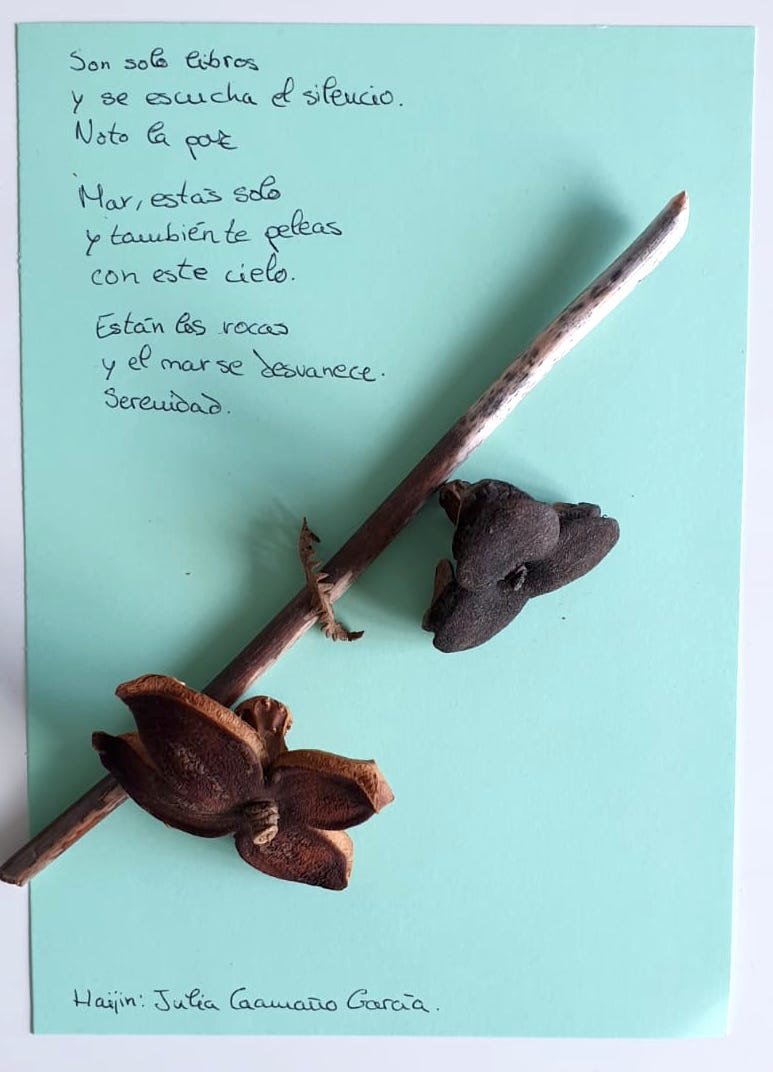 Son solo libros
y se escucha el silencio.
Noto la paz
Mar, estás solo
y también te peleas
con este cielo.
Están las rocas
y el mar se desvanece.
Serenidad.
Haijin: Julia Caamaño García.